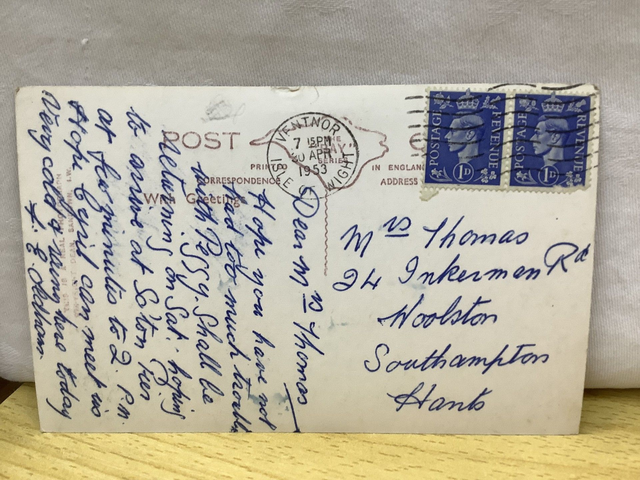 POST
VENTNOR
7 15PM
30 APR
1953
ISLE OF WIGHT
PRINTED
IN ENGLAND
CORRESPONDENCE
ADDRESS
With Greetings
POSTAGE REVENUE
1D
POSTAGE REVENUE
1D
Dear Mrs Thomas
Hope you have not
had too much trouble
with Peggy. Shall be
returning on Sat. hoping
to arrive at So'ton Pier
at few minutes to 2. P.m.
Hope Cyril can meet us
Very cold & windy here today
Mrs Thomas
24 Inkerman Rd
Woolston
Southampton
Hants